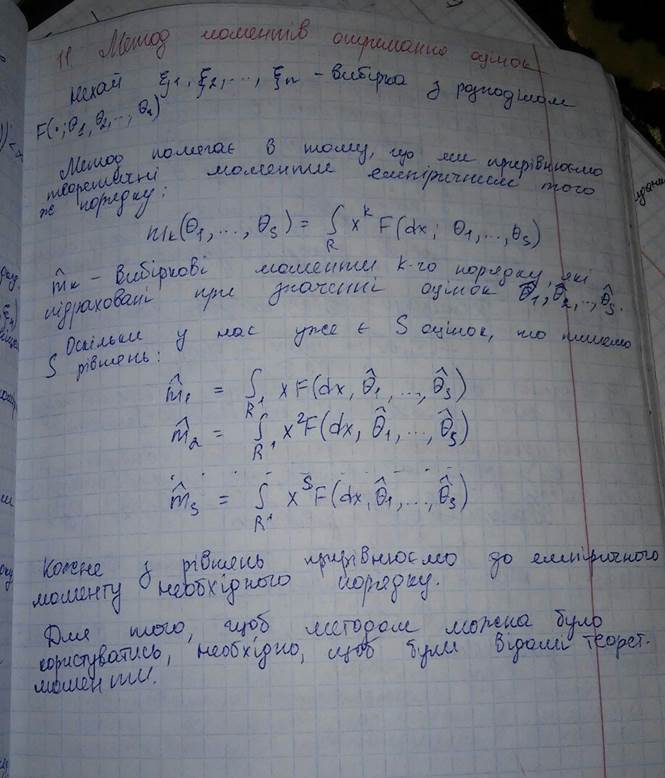 11. Метод моментів отримання оцінок
Нехай ξ1, ξ2, ..., ξn - вибірка з розподілом
F(·; θ1, θ2, ..., θs)
Метод полягає в тому, що ми прирівнюємо
теоретичні моменти емпіричним того
же порядку:
mk(θ1, ..., θs) = ∫R x^k F(dx; θ1, ..., θs)
m̂k - вибіркові моменти k-го порядку, які
підраховані при значенні оцінок θ̂1, θ̂2, ..., θ̂s.
Оскільки у нас уже є S оцінок, то пишемо
S рівнянь:
m̂1 = ∫R1 x F(dx, θ̂1, ..., θ̂s)
m̂2 = ∫R1 x^2 F(dx, θ̂1, ..., θ̂s)
. . . . . . . . .
m̂s = ∫R1 x^s F(dx, θ̂1, ..., θ̂s)
Кожне з рівнянь прирівнюємо до емпіричного
моменту необхідного порядку.
Для того, щоб методом можна було
користуватись, необхідно, щоб були відомі теорет.
моменти.